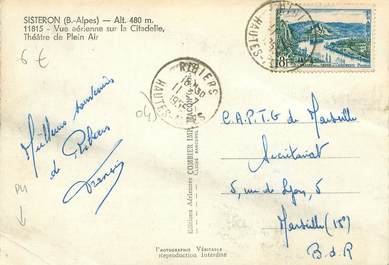 SISTERON (B.-Alpes) — Alt. 480 m.
11815 - Vue aérienne sur la Citadelle,
Théâtre de Plein Air
6 €
RIBIERS
HAUTES-ALPES
18F
(04)
Meilleurs souvenirs
de Ribiers
C.A.P.T.G de Marseille
Secrétariat
5, rue de Lyon, 5
Marseille (15e)
B. d. R
Editions Aériennes COMBIER IMP. MACON
PHOTOGRAPHIE VÉRITABLE
Reproduction Interdite